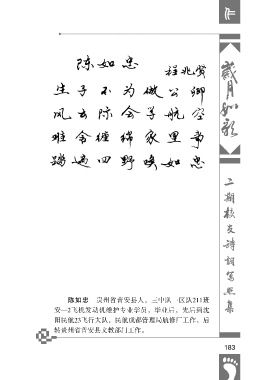 作
陈如忠
程兆贤
生子不为做公卿
风云际会学航空
难舍缠绵家里事
踏遍四野唤如忠
岁月如歌
二期校友诗词写照集
陈如忠 贵州省普安县人。三中队一区队211班
安—2飞机发动机维护专业学员。毕业后，先后到沈
阳民航23飞行大队、民航成都管理局航修厂工作。后
转贵州省普安县文教部门工作。
183